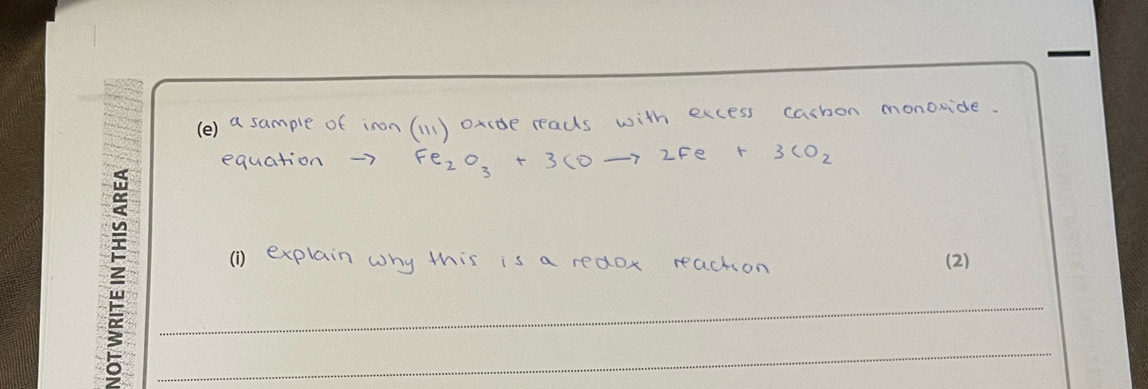 (e) a sample of iron (III) oxide reacts with excess carbon monoxide.
equation → Fe₂O₃ + 3CO → 2Fe + 3CO₂
(i) explain why this is a redox reaction (2)
NOT WRITE IN THIS AREA